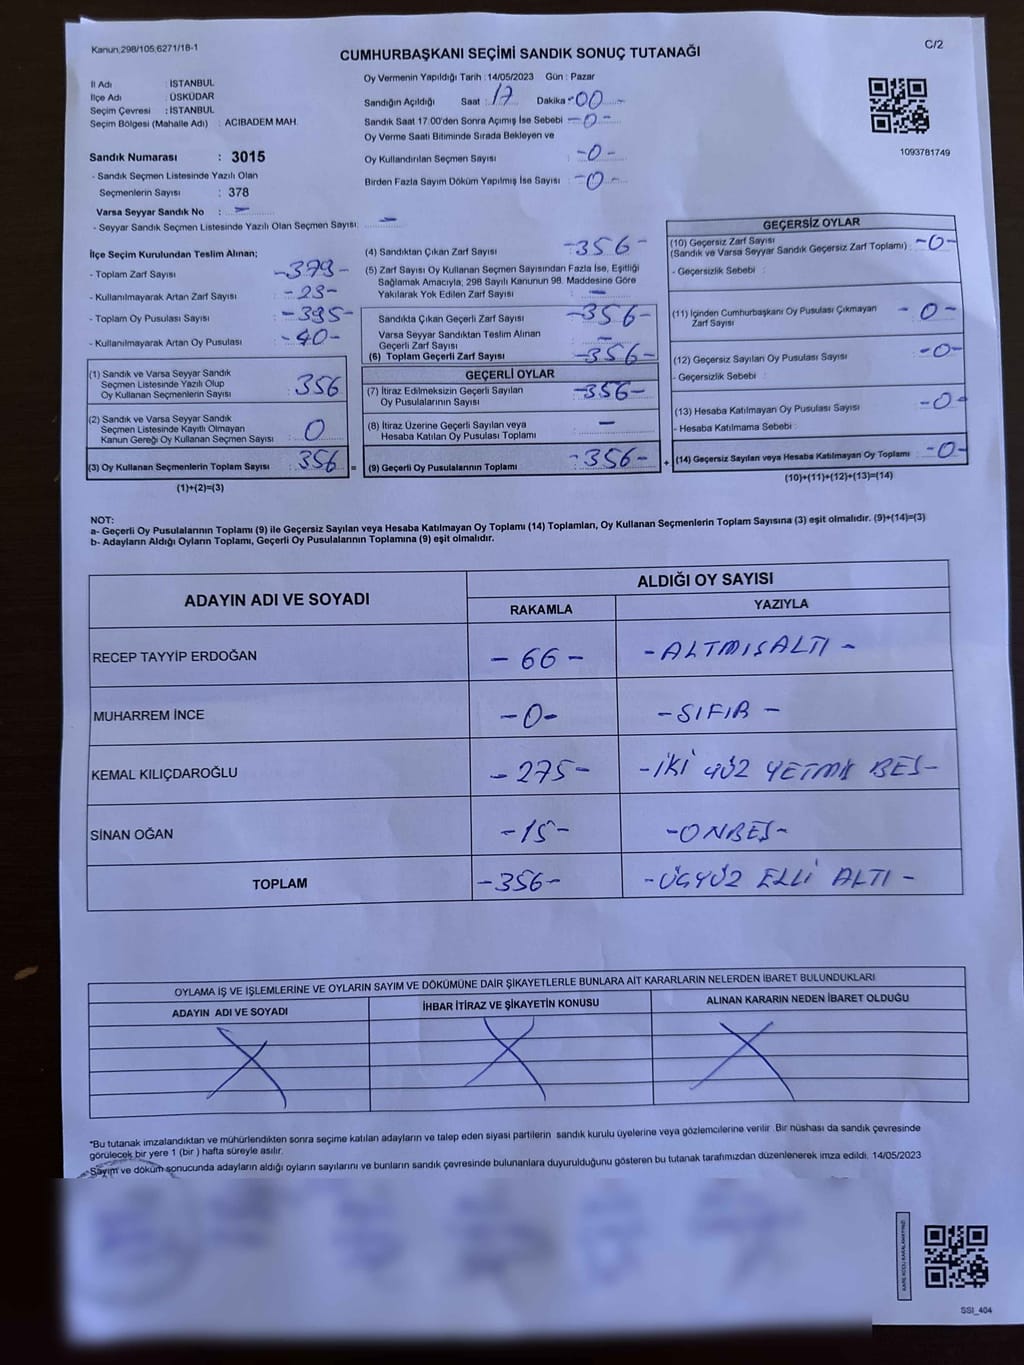 Kanun:298/105,6271/18-1
C/2
CUMHURBAŞKANI SEÇİMİ SANDIK SONUÇ TUTANAĞI
İl Adı : İSTANBUL
İlçe Adı : ÜSKÜDAR
Seçim Çevresi : İSTANBUL
Seçim Bölgesi (Mahalle Adı) : ACIBADEM MAH.
Sandık Numarası : 3015
- Sandık Seçmen Listesinde Yazılı Olan
Seçmenlerin Sayısı : 378
Varsa Seyyar Sandık No : -
- Seyyar Sandık Seçmen Listesinde Yazılı Olan Seçmen Sayısı: -
Oy Vermenin Yapıldığı Tarih :14/05/2023 Gün : Pazar
Sandığın Açıldığı Saat : 17 Dakika : 00 -
Sandık Saat 17:00'den Sonra Açımış İse Sebebi -0-
Oy Verme Saati Bitiminde Sırada Bekleyen ve
Oy Kullandırılan Seçmen Sayısı : -0-
Birden Fazla Sayım Döküm Yapılmış İse Sayısı : -0-
1093781749
İlçe Seçim Kurulundan Teslim Alınan;
- Toplam Zarf Sayısı -379-
- Kullanılmayarak Artan Zarf Sayısı -23-
- Toplam Oy Pusulası Sayısı :-395-
- Kullanılmayarak Artan Oy Pusulası -40-
(1) Sandık ve Varsa Seyyar Sandık
Seçmen Listesinde Yazılı Olup
Oy Kullanan Seçmenlerin Sayısı : 356
(2) Sandık ve Varsa Seyyar Sandık
Seçmen Listesinde Kayıtlı Olmayan
Kanun Gereği Oy Kullanan Seçmen Sayısı : 0
(3) Oy Kullanan Seçmenlerin Toplam Sayısı : 356 =
(1)+(2)=(3)
(4) Sandıktan Çıkan Zarf Sayısı -356-
(5) Zarf Sayısı Oy Kullanan Seçmen Sayısından Fazla İse, Eşitliği
Sağlamak Amacıyla; 298 Sayılı Kanunun 98. Maddesine Göre
Yakılarak Yok Edilen Zarf Sayısı : -
Sandıkta Çıkan Geçerli Zarf Sayısı -356-
Varsa Seyyar Sandıktan Teslim Alınan
Geçerli Zarf Sayısı : -
(6) Toplam Geçerli Zarf Sayısı -356-
GEÇERLİ OYLAR
(7) İtiraz Edilmeksizin Geçerli Sayılan
Oy Pusulalarının Sayısı -356-
(8) İtiraz Üzerine Geçerli Sayılan veya
Hesaba Katılan Oy Pusulası Toplamı : -
(9) Geçerli Oy Pusulalarının Toplamı : -356- +
GEÇERSİZ OYLAR
(10) Geçersiz Zarf Sayısı
(Sandık ve Varsa Seyyar Sandık Geçersiz Zarf Toplamı) : -0-
- Geçersizlik Sebebi :
(11) İçinden Cumhurbaşkanı Oy Pusulası Çıkmayan
Zarf Sayısı : -0-
(12) Geçersiz Sayılan Oy Pusulası Sayısı : -0-
- Geçersizlik Sebebi :
(13) Hesaba Katılmayan Oy Pusulası Sayısı : -0-
- Hesaba Katılmama Sebebi :
(14) Geçersiz Sayılan veya Hesaba Katılmayan Oy Toplamı : -0-
(10)+(11)+(12)+(13)=(14)
NOT:
a- Geçerli Oy Pusulalarının Toplamı (9) ile Geçersiz Sayılan veya Hesaba Katılmayan Oy Toplamı (14) Toplamları, Oy Kullanan Seçmenlerin Toplam Sayısına (3) eşit olmalıdır. (9)+(14)=(3)
b- Adayların Aldığı Oyların Toplamı, Geçerli Oy Pusulalarının Toplamına (9) eşit olmalıdır.
ADAYIN ADI VE SOYADI ALDIĞI OY SAYISI
RAKAMLA YAZIYLA
RECEP TAYYİP ERDOĞAN -66- -ALTMIŞALTI-
MUHARREM İNCE -0- -SIFIR-
KEMAL KILIÇDAROĞLU -275- -İKİ YÜZ YETMİŞ BEŞ-
SİNAN OĞAN -15- -ONBEŞ-
TOPLAM -356- -ÜÇYÜZ ELLİ ALTI-
OYLAMA İŞ VE İŞLEMLERİNE VE OYLARIN SAYIM VE DÖKÜMÜNE DAİR ŞİKAYETLERLE BUNLARA AİT KARARLARIN NELERDEN İBARET BULUNDUKLARI
ADAYIN ADI VE SOYADI İHBAR İTİRAZ VE ŞİKAYETİN KONUSU ALINAN KARARIN NEDEN İBARET OLDUĞU
*Bu tutanak imzalandıktan ve mühürlendikten sonra seçime katılan adayların ve talep eden siyasi partilerin sandık kurulu üyelerine veya gözlemcilerine verilir. Bir nüshası da sandık çevresinde
görülecek bir yere 1 (bir) hafta süreyle asılır.
Sayım ve döküm sonucunda adayların aldığı oyların sayılarını ve bunların sandık çevresinde bulunanlara duyurulduğunu gösteren bu tutanak tarafımızdan düzenlenerek imza edildi. 14/05/2023
KARE KODU KARALAMAYINIZ!
SSI_404